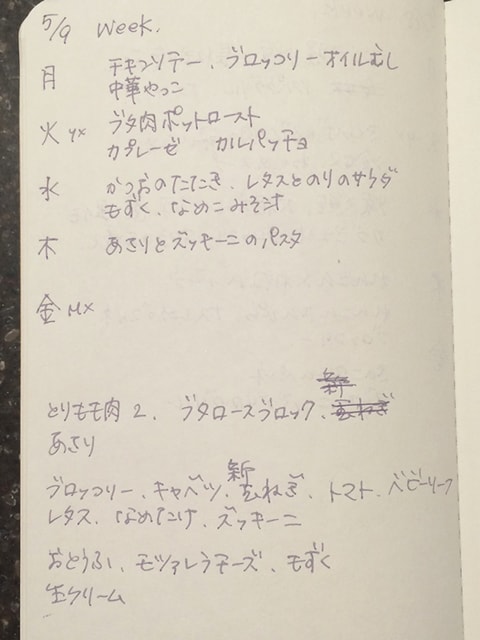 5/9 Week.
月 チキンソテー、ブロッコリーオイルむし
中華やっこ
火 YX ブタ肉ポットロースト
カプレーゼ カルパッチョ
水 かつおのたたき、レタスとのりのサラダ
もずく、なめこみそ汁
木 あさりとズッキーニのパスタ
金 MX
とりもも肉 2、ブタロースブロック、
あさり
ブロッコリー、キャベツ、新玉ねぎ、トマト、ベビーリーフ
レタス、なめたけ、ズッキーニ
おとうふ、モツァレラチーズ、もずく
生クリーム